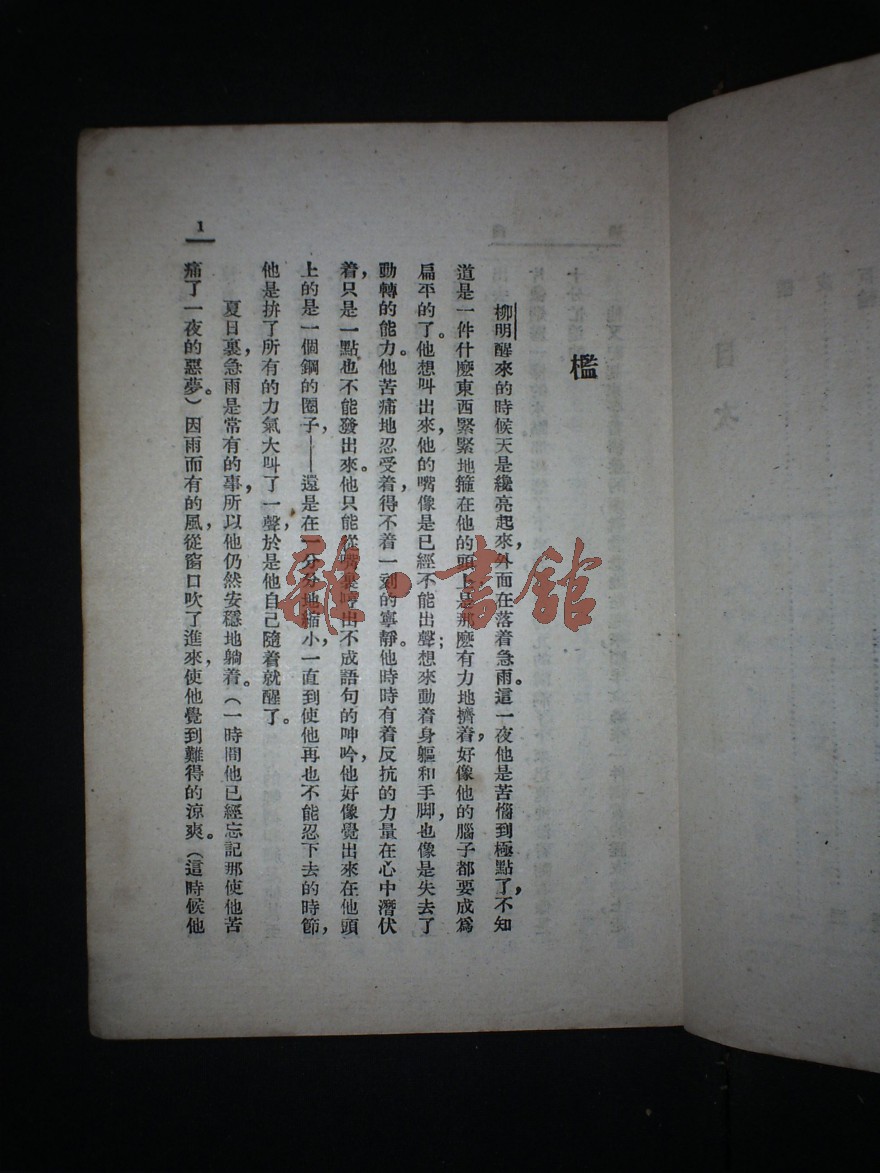 檻
柳明醒來的時候天是纔亮起來，外面在落着急雨。這一夜他是苦惱到極點了，不知
道是一件什麼東西緊緊地箍在他的頭上，是那麼有力地擠着，好像他的腦子都要成爲
扁平的了。他想叫出來，他的嘴像是已經不能出聲；想來動着身軀和手脚，也像是失去了
動轉的能力。他苦痛地忍受着，得不着一刻的寧靜。他時時有着反抗的力量在心中潛伏
着，只是一點也不能發出來。他只能從嘴裏哼出不成語句的呻吟，他好像覺出來在他頭
上的是一個鋼的圈子，——還是在一分分地縮小，一直到使他再也不能忍下去的時節，
他是拚了所有的力氣大叫了一聲，於是他自己隨着就醒了。
夏日裏，急雨是常有的事，所以他仍然安穩地躺着。（一時間他已經忘記那使他苦
痛了一夜的惡夢。）因雨而有的風，從窗口吹了進來，使他覺到難得的涼爽。（這時候他
1
雜·書館
目次